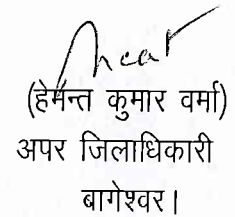 (हेमन्त कुमार वर्मा)
अपर जिलाधिकारी
बागेश्वर।